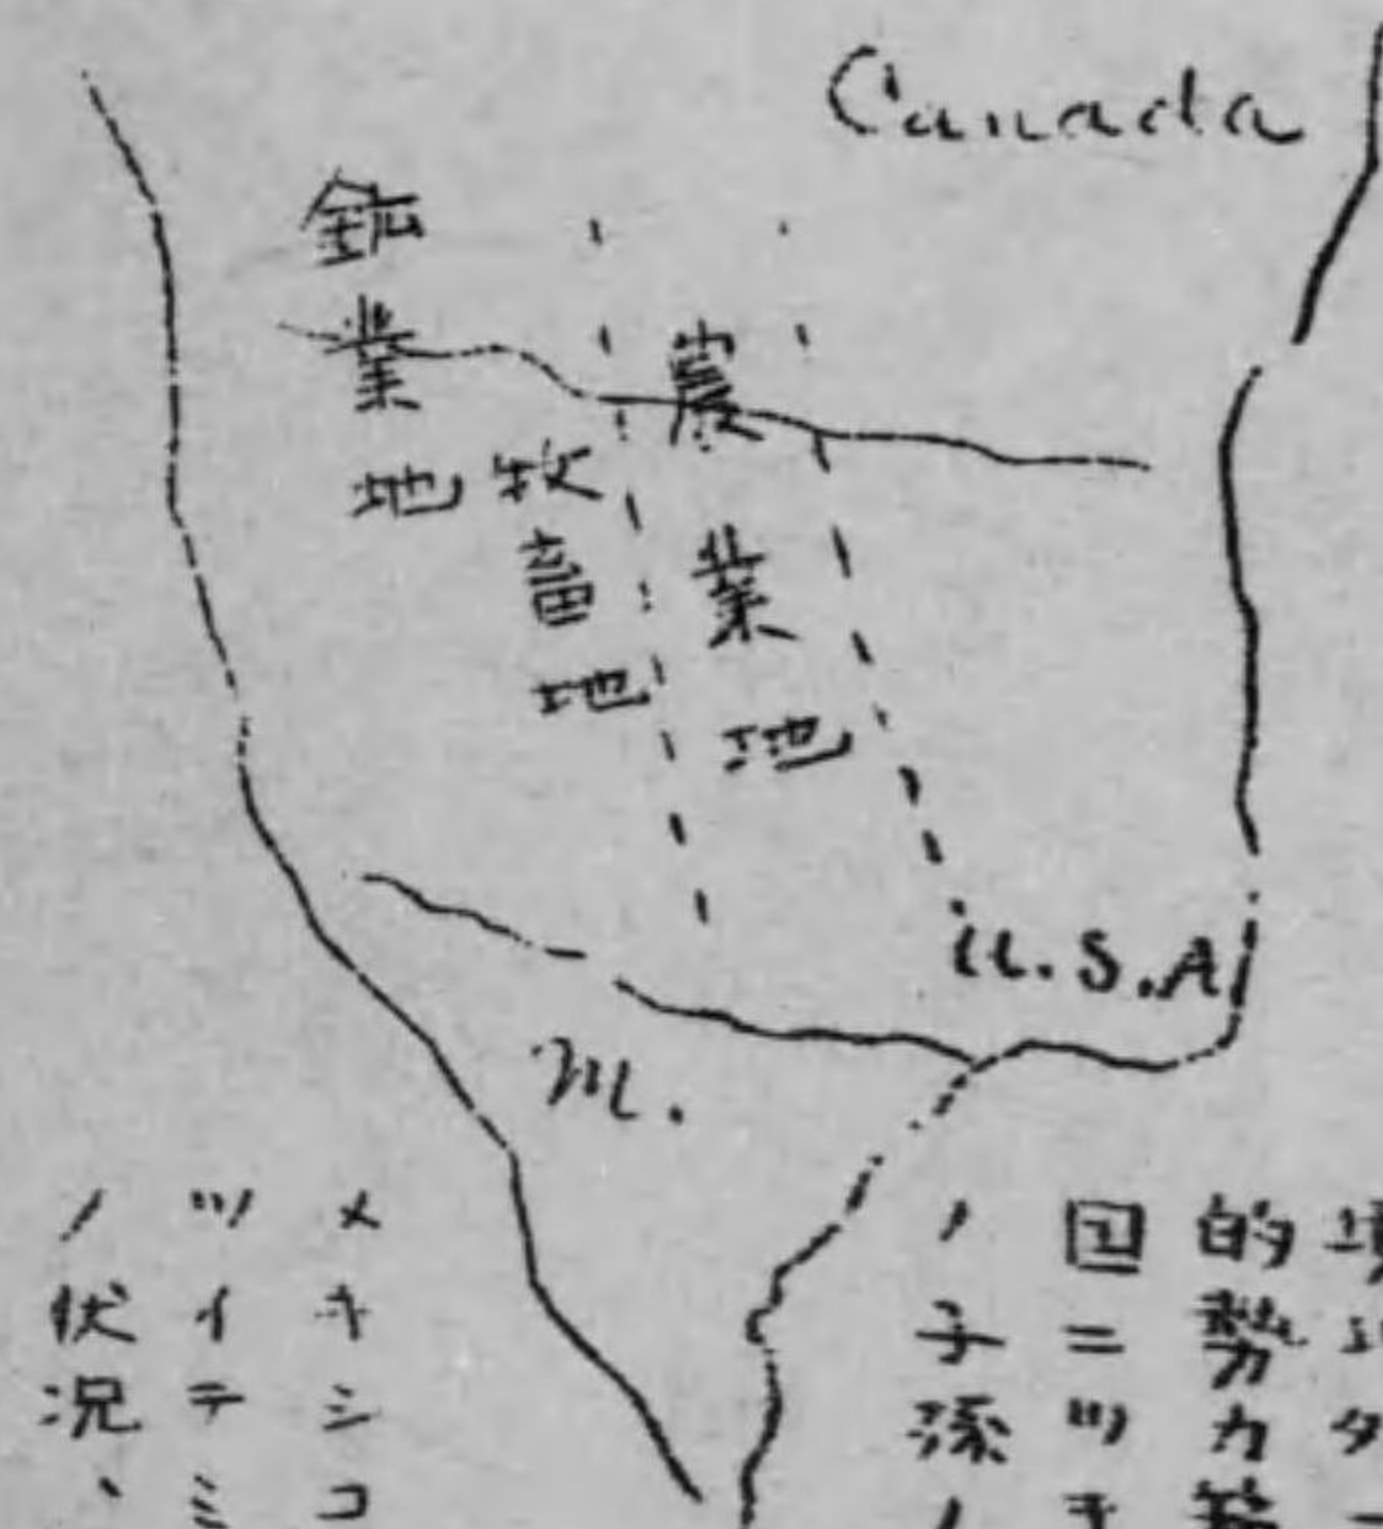 Canada
鉱業地
牧畜地
農業地
U.S.A
M.
的勢力
国ニツキ
ノ子孫ノ
メキシコ
ツイテミ
ノ状況、